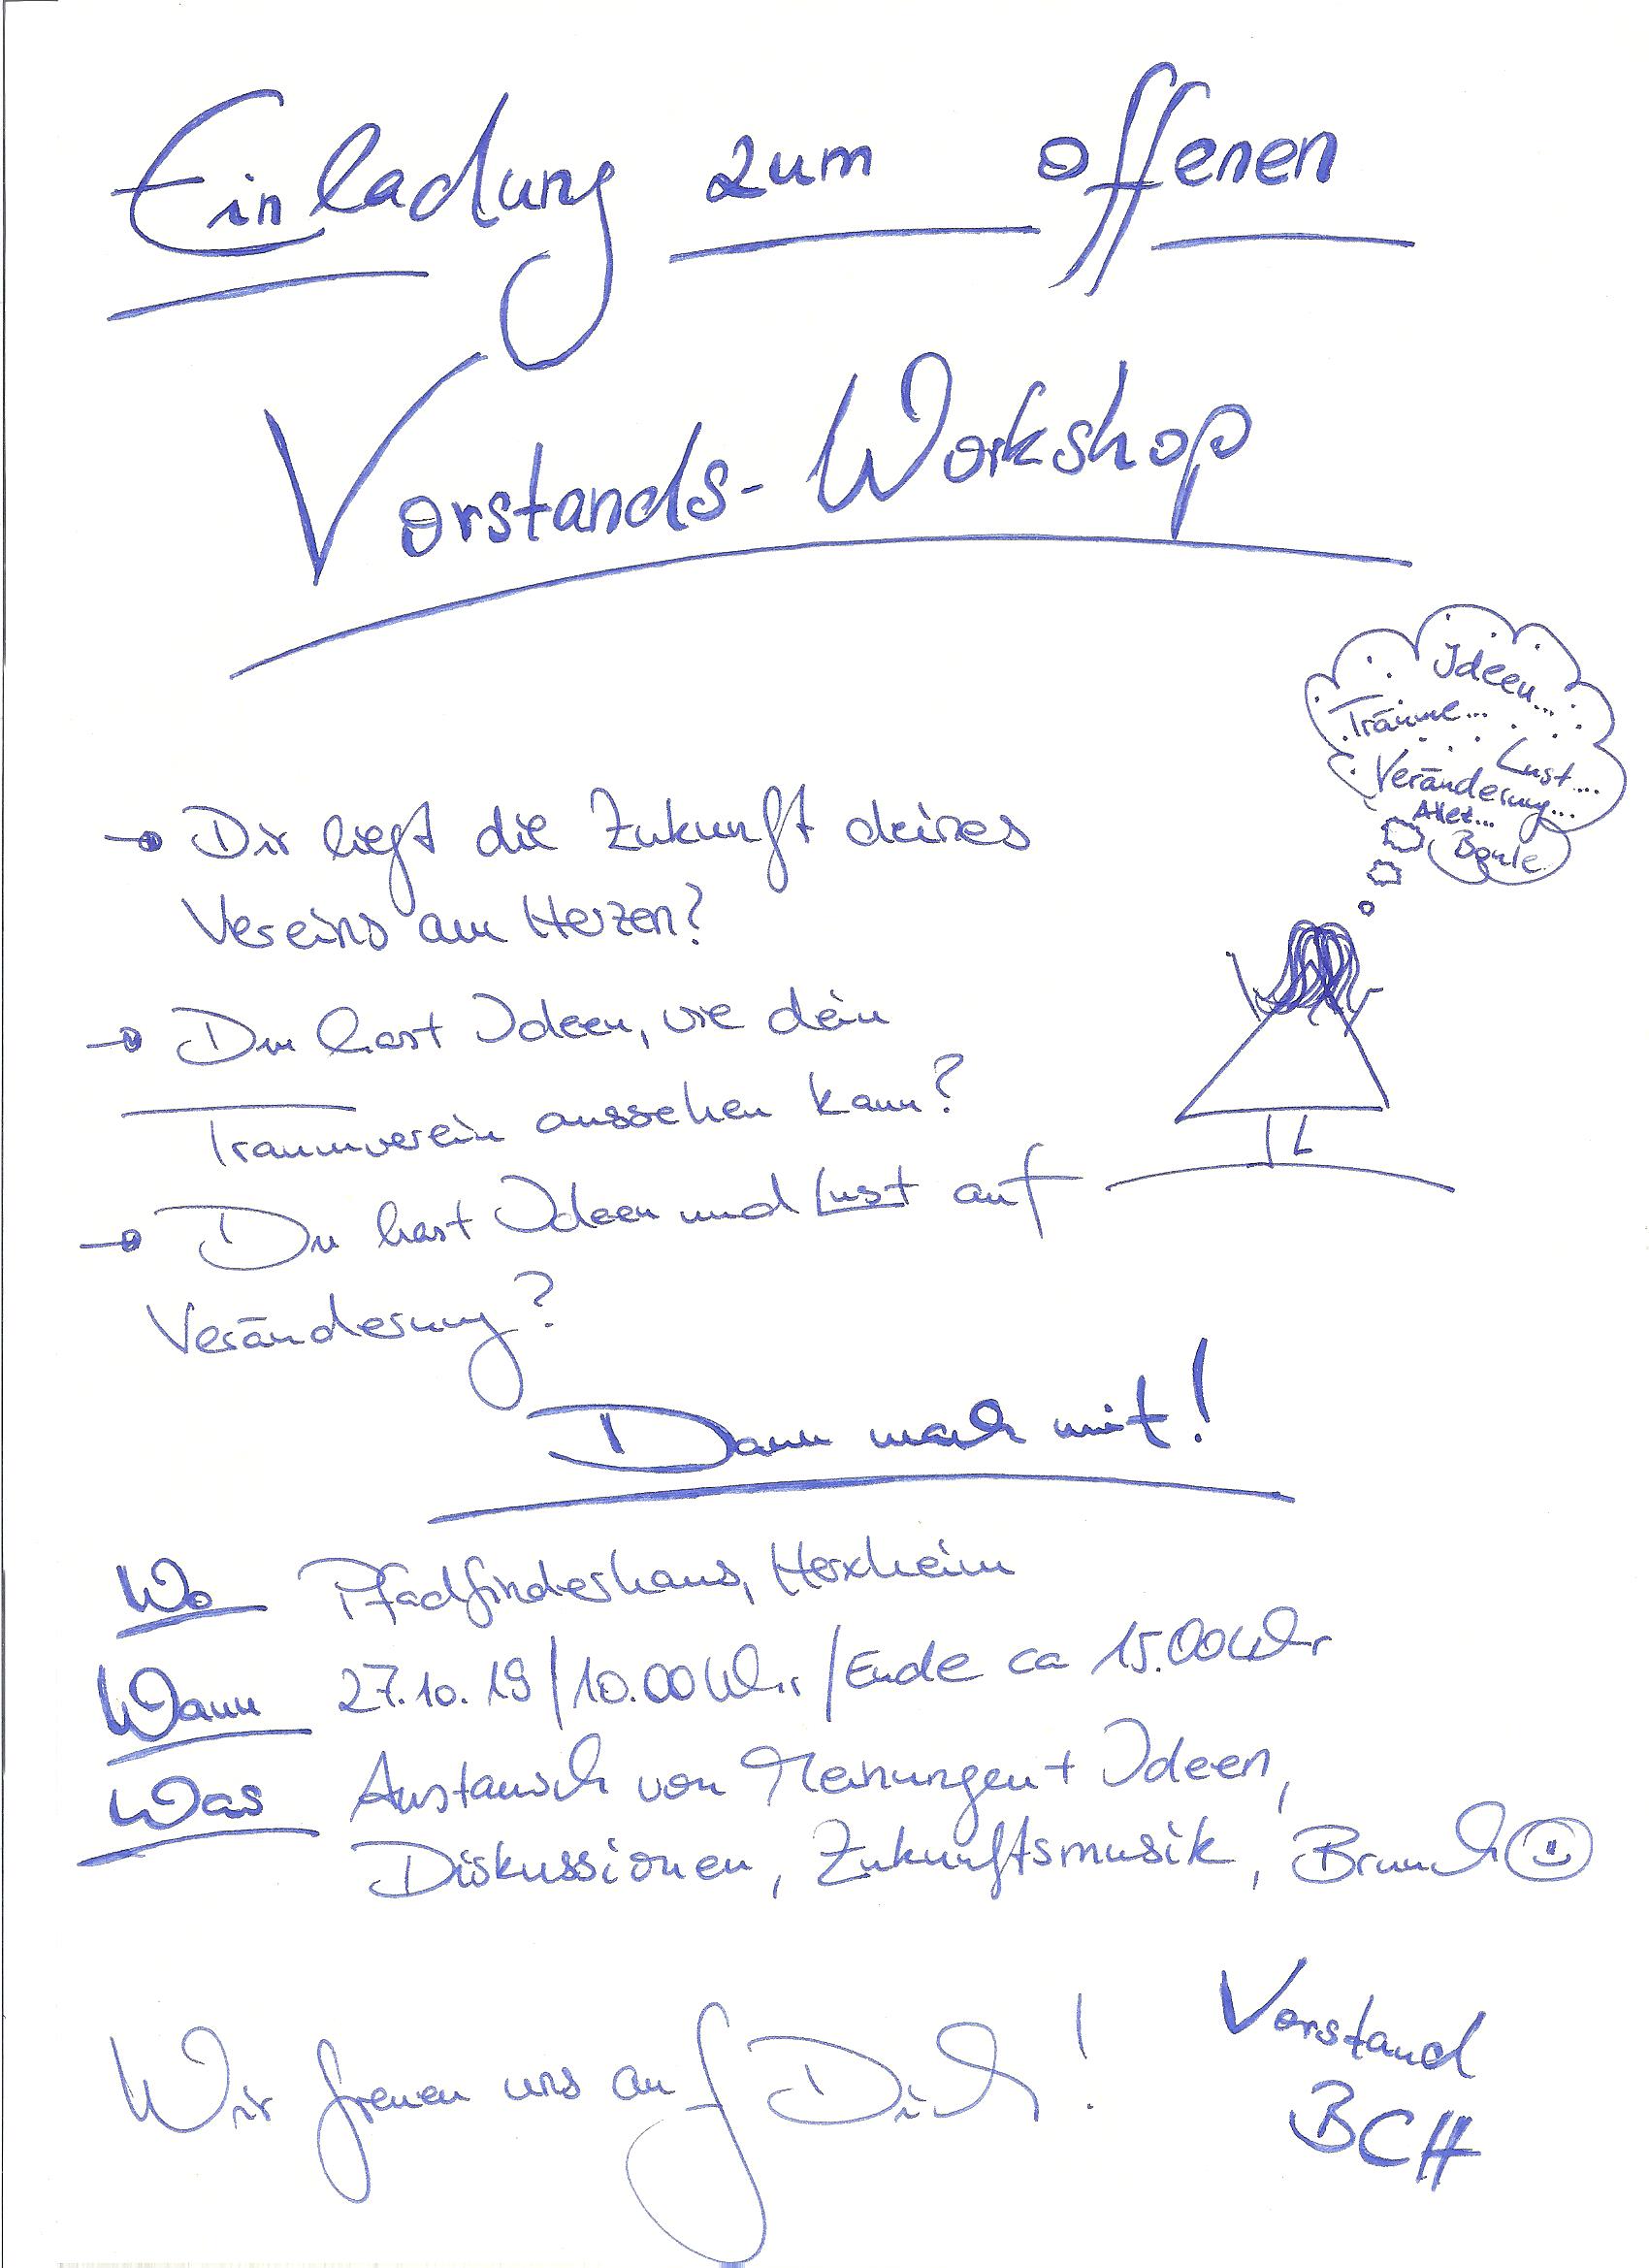 Einladung zum offenen
Vorstands-Workshop
Ideen...
Träume...
Lust...
Veränderung...
Alles...
Boule
Dir liegt die Zukunft deines
Vereins am Herzen?
Du hast Ideen, wie dein
Traumverein aussehen kann?
Du hast Ideen und Lust auf
Veränderung?
Dann mach mit!
Wo Pfadfinderhaus, Herxheim
Wann 27.10.19/10.00 Uhr/Ende ca 15.00 Uhr
Was Austausch von Meinungen + Ideen,
Diskussionen, Zukunftsmusik, Brunch
Wir freuen uns auf Dich!
Vorstand
BCH